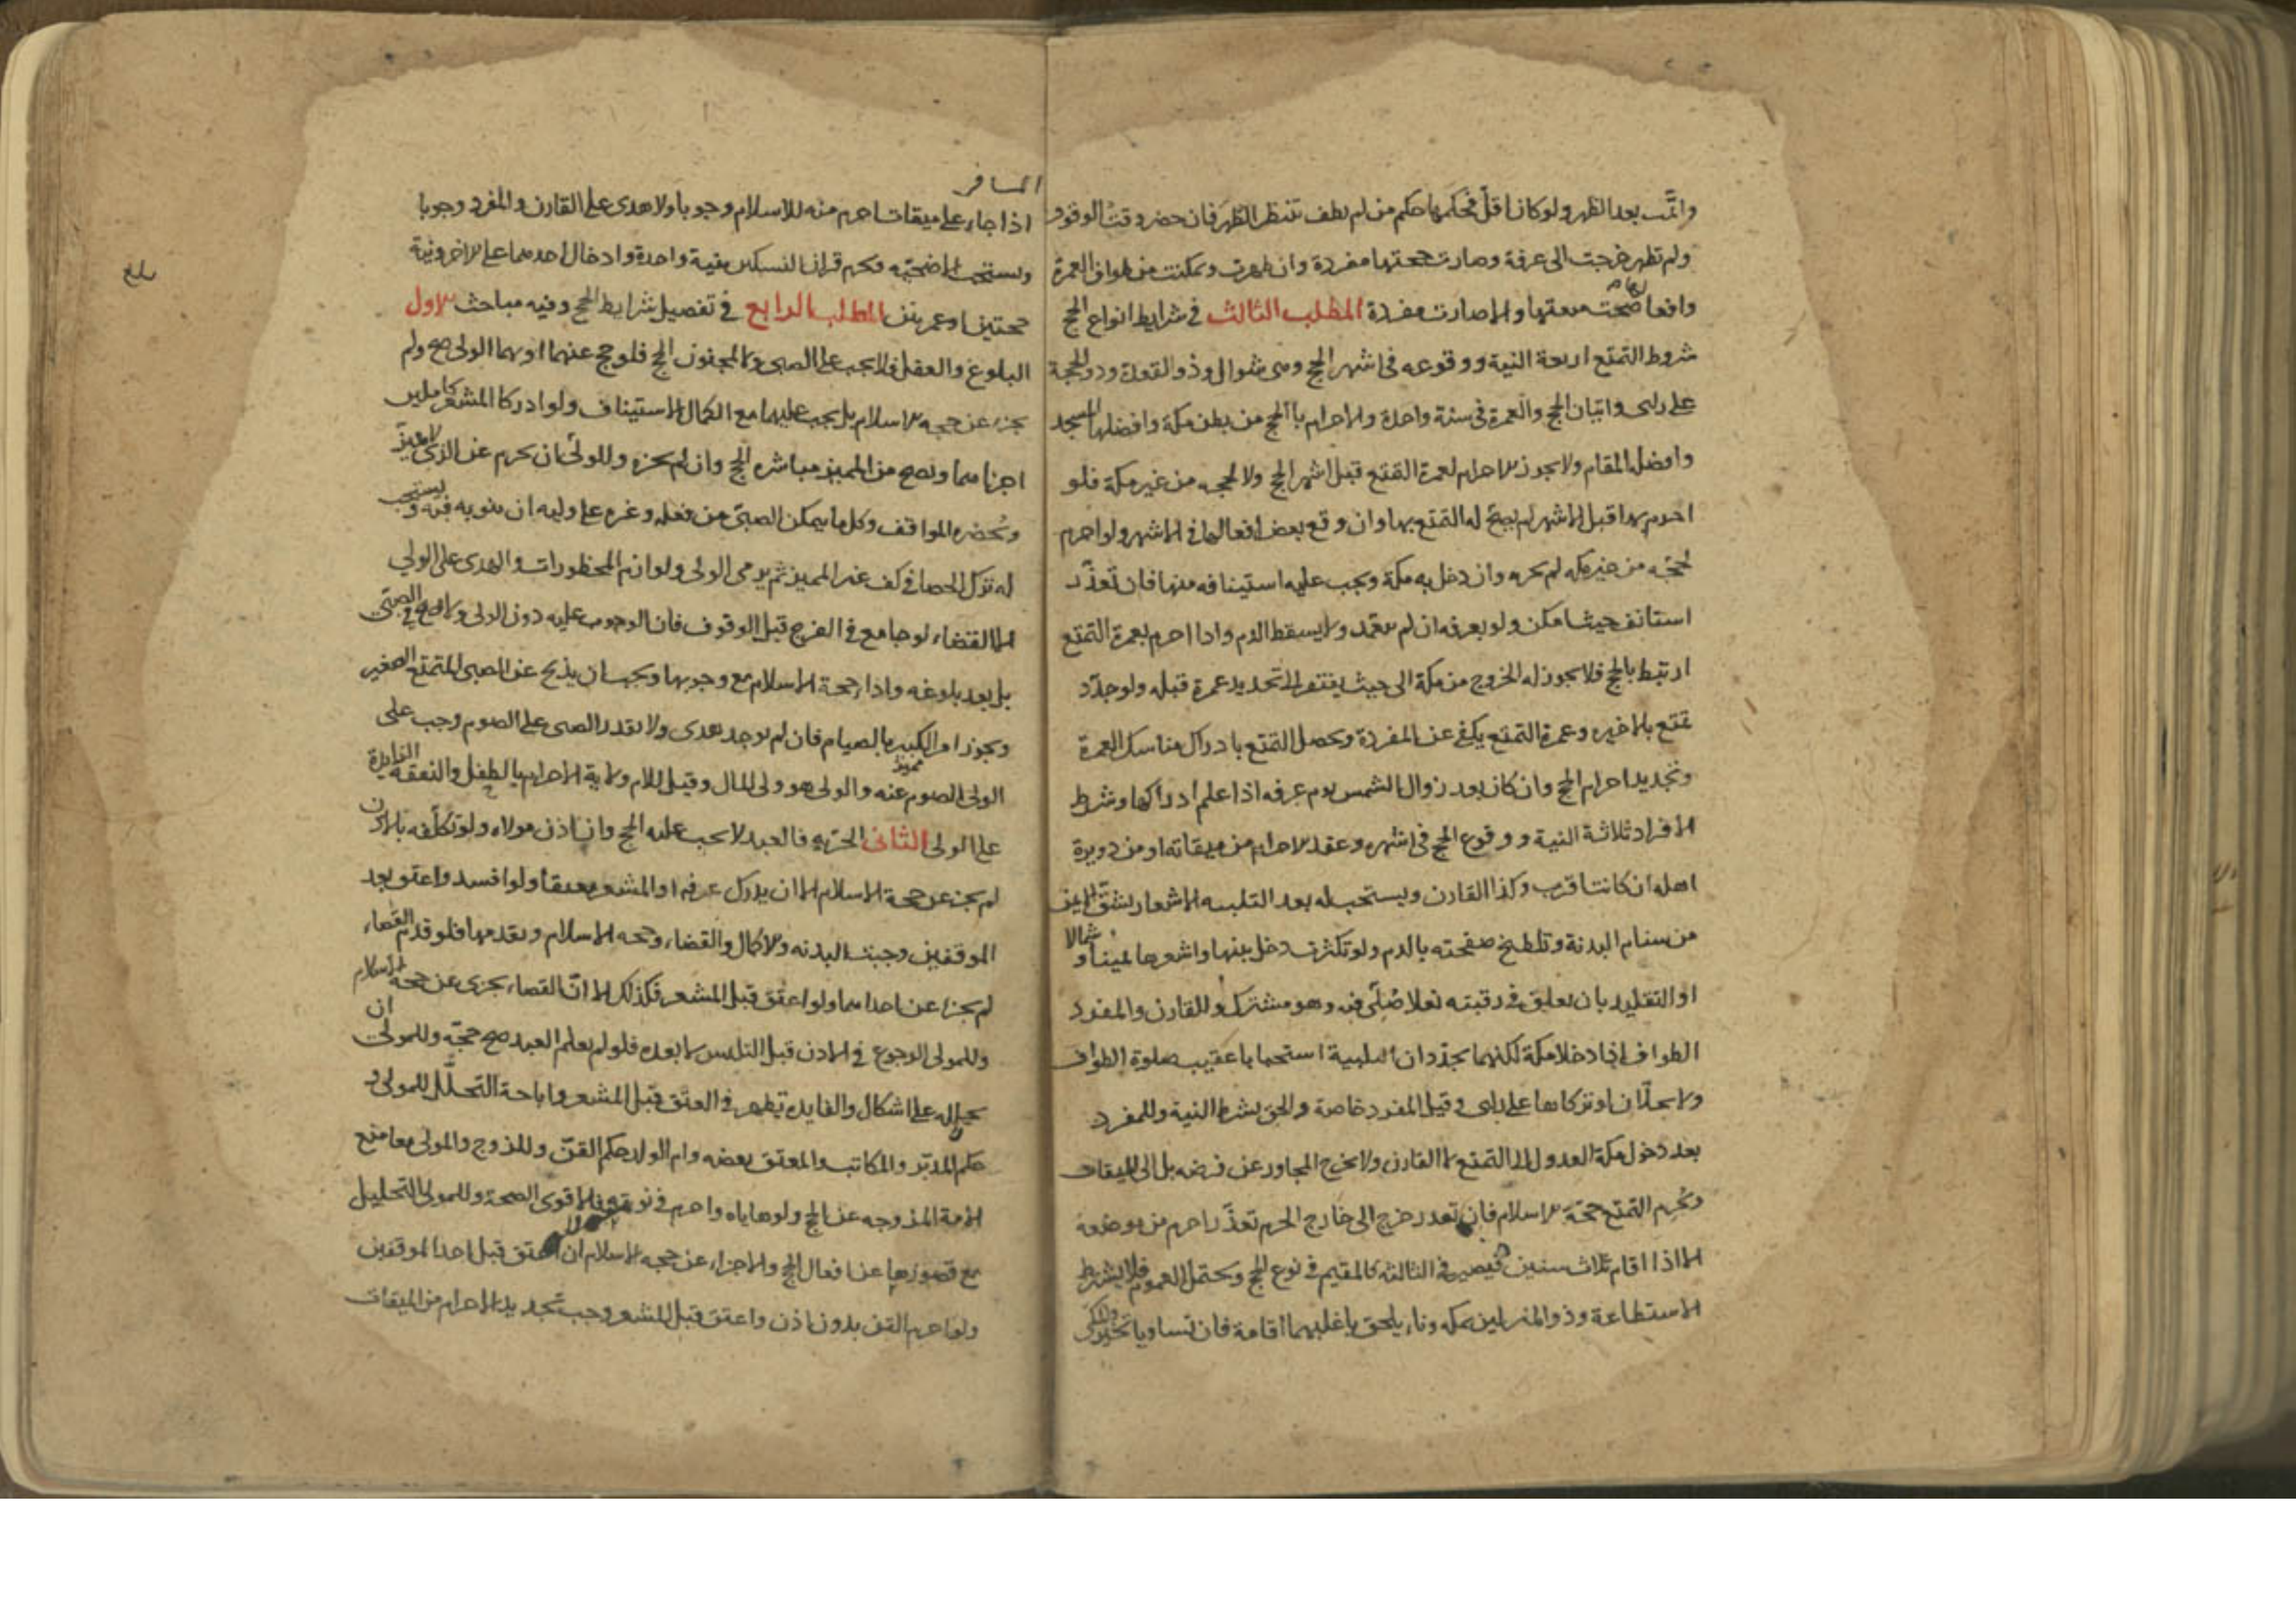 واتمّت بعد الظهر ولو كان اقلّ فحكمها حكم من لم يطف تنتظر الطهر فان حضر وقت الوقوف
ولم تطهر خرجت الى عرفة وصارت حجتها مفردة وان طهرت وتمكنت من طواف العمرة
وافعالها صحّت متعتها والا صارت مفردة المطلب الثالث في شرايط انواع الحج
شروط التمتع اربعة النية ووقوعه في اشهر الحج وهي شوال وذو القعدة وذو الحجة
على راى واتيان الحج والعمرة في سنة واحدة والاحرام بالحج من بطن مكة وافضلها المسجد
وافضله المقام ولا يجوز الاحرام لعمرة التمتع قبل اشهر الحج ولا لحجه من غير مكة فلو
احرم بها قبل الاشهر لم يصحّ له التمتع بها وان وقع بعض افعالها في الاشهر ولو احرم
لحجّه من غير مكه لم يجزه وان دخل به مكة ويجب عليه استينافه منها فان تعذّر
استانف حيث امكن ولو بعرفه ان لم يتعمد ولا يسقط الدم واذا احرم بعمرة التمتع
ارتبط بالحج فلا يجوز له الخروج من مكة الى حيث يفتقر الى تجديد عمرة قبله ولو جدّد
تمتع بالاخيره وعمرة التمتع يكفي عن المفردة ويحصل التمتع بادراك مناسك العمرة
وتجديد احرام الحج وان كان بعد زوال الشمس يوم عرفه اذا علم ادراكها وشرط
الافراد ثلاثة النية ووقوع الحج في اشهره وعقد الاحرام من ميقاته او من دويرة
اهله ان كانت اقرب وكذا القارن ويستحب له بعد التلبيه الاشعار بشقّ الايمن
من سنام البدنة وتلطيخ صفحته بالدم ولو تكثرت دخل بينها واشعرها يمينا وشمالا
او التقليد بان يعلق في رقبته نعلا صلّى فيه وهو مشترك وللقارن والمفرد
الطواف اذا دخلا مكة لكنهما يجدّدان التلبية استحبابا عقيب صلوة الطواف
ولا يحلّان لو تركاها على راى وقيل المفرد خاصة والحق بشرط النية وللمفرد
بعد دخول مكة العدول الى التمتع لا القارن ولا يخرج المجاور عن فرضه بل الى الميقات
ويحرم التمتع حجّة الاسلام فان تعذر خرج الى خارج الحرم تعذّر احرم من موضعه
الا اذا اقام ثلاث سنين فيصير في الثالثة كالمقيم في نوع الحج ويحتمل العموم فلا يشترط
الاستطاعة وذو المنزلين بمكه وناء يلحق باغلبهما اقامة فان تساويا تخيّر والمكّي
المسافر
اذا جاء على ميقات احرم منه للاسلام وجوبا ولا هدى على القارن والمفرد وجوبا
ويستحب الاضحيّه ويحرم قران النسكين بنية واحدة وادخال احدهما على الاخر ونية
حجتين او عمرتين المطلب الرابع في تفصيل شرايط الحج وفيه مباحث الاول
البلوغ والعقل فلا يجب على الصبى ولا المجنون الحج فلو حج عنهما او بهما الولى صح ولم
يجزء عن حجه الاسلام بل يجب عليهما مع الكمال الاستيناف ولو ادركا المشعر كاملين
اجزاهما ويصح من المميز مباشره الحج وان لم يجزه وللولىّ ان يحرم عن الذى لا يميّز
ويُحضره المواقف وكل ما يمكن الصبىّ من فعله وغيره على وليه ان ينوبه فيه ويستحب
له ترك الحصا في كف غير المميز ثم يرمى الولى ولوازم المحظورات والهدى على الولي
الا القضاء لو جامع في الفرج قبل الوقوف فان الوجوب عليه دون الولى ولا يصح في الصبىّ
بل بعد بلوغه واداء حجة الاسلام مع وجوبها ويجب ان يذبح عن الصبى المتمتع الصغير
ويجوز امر الكبير بالصيام فان لم يوجد هدى ولا يقدر الصبى على الصوم وجب على
الولى الصوم عنه والولى هو ولى المال وقيل للام ولاية الاحرام بالطفل غير مميز والنفقه الزايدة
على الولى الثانى الحرّيه فالعبد لا يجب عليه الحج وان اذن مولاه ولو تكلّفه بالاذن
لم يجزء عن حجة الاسلام الا ان يدرك عرفه او المشعر معتقا ولو افسد واعتق بعد
الموقفين وجبت البدنه والاكمال والقضاء وحجه الاسلام ويقدمها فلو قدم القضاء
لم يجزء عن احداهما ولو اعتق قبل المشعر فكذلك الا انّ القضاء يجزى عن حجه الاسلام
وللمولى الرجوع في الاذن قبل التلبس لا بعده فلو لم يعلم العبد صح حجّه وللمولىّ ان
يحلله على اشكال والفايده تظهر في العتق قبل المشعر واباحة التحلّل للمولى و
حكم المدبّر والمكاتب والمعتق بعضه وام الولد حكم القنّ وللزوج والمولى معا منع
الامة المزوجه عن الحج ولو هاياه واحرم في نوبته فالاقوى الصحة وللمولى التحليل
مع قصورها عن افعال الحج والاجزاء عن حجه الاسلام ان اعتق قبل احد الموقفين
ولو احرم القن بدون اذن واعتق قبل المشعر وجب تجديد الاحرام من الميقات
بلغ